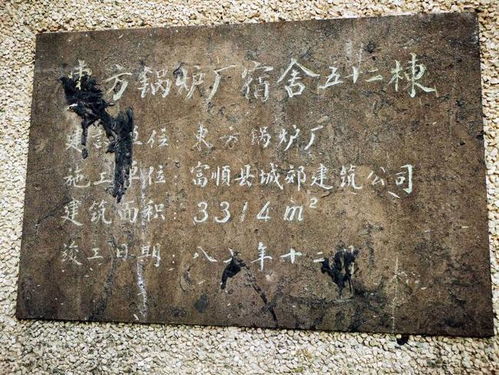 東方锅炉厂宿舍五十二栋
建设单位：東方锅炉厂
施工单位：富順县城郊建筑公司
建筑面积：3314m²
竣工日期：八 年十二月